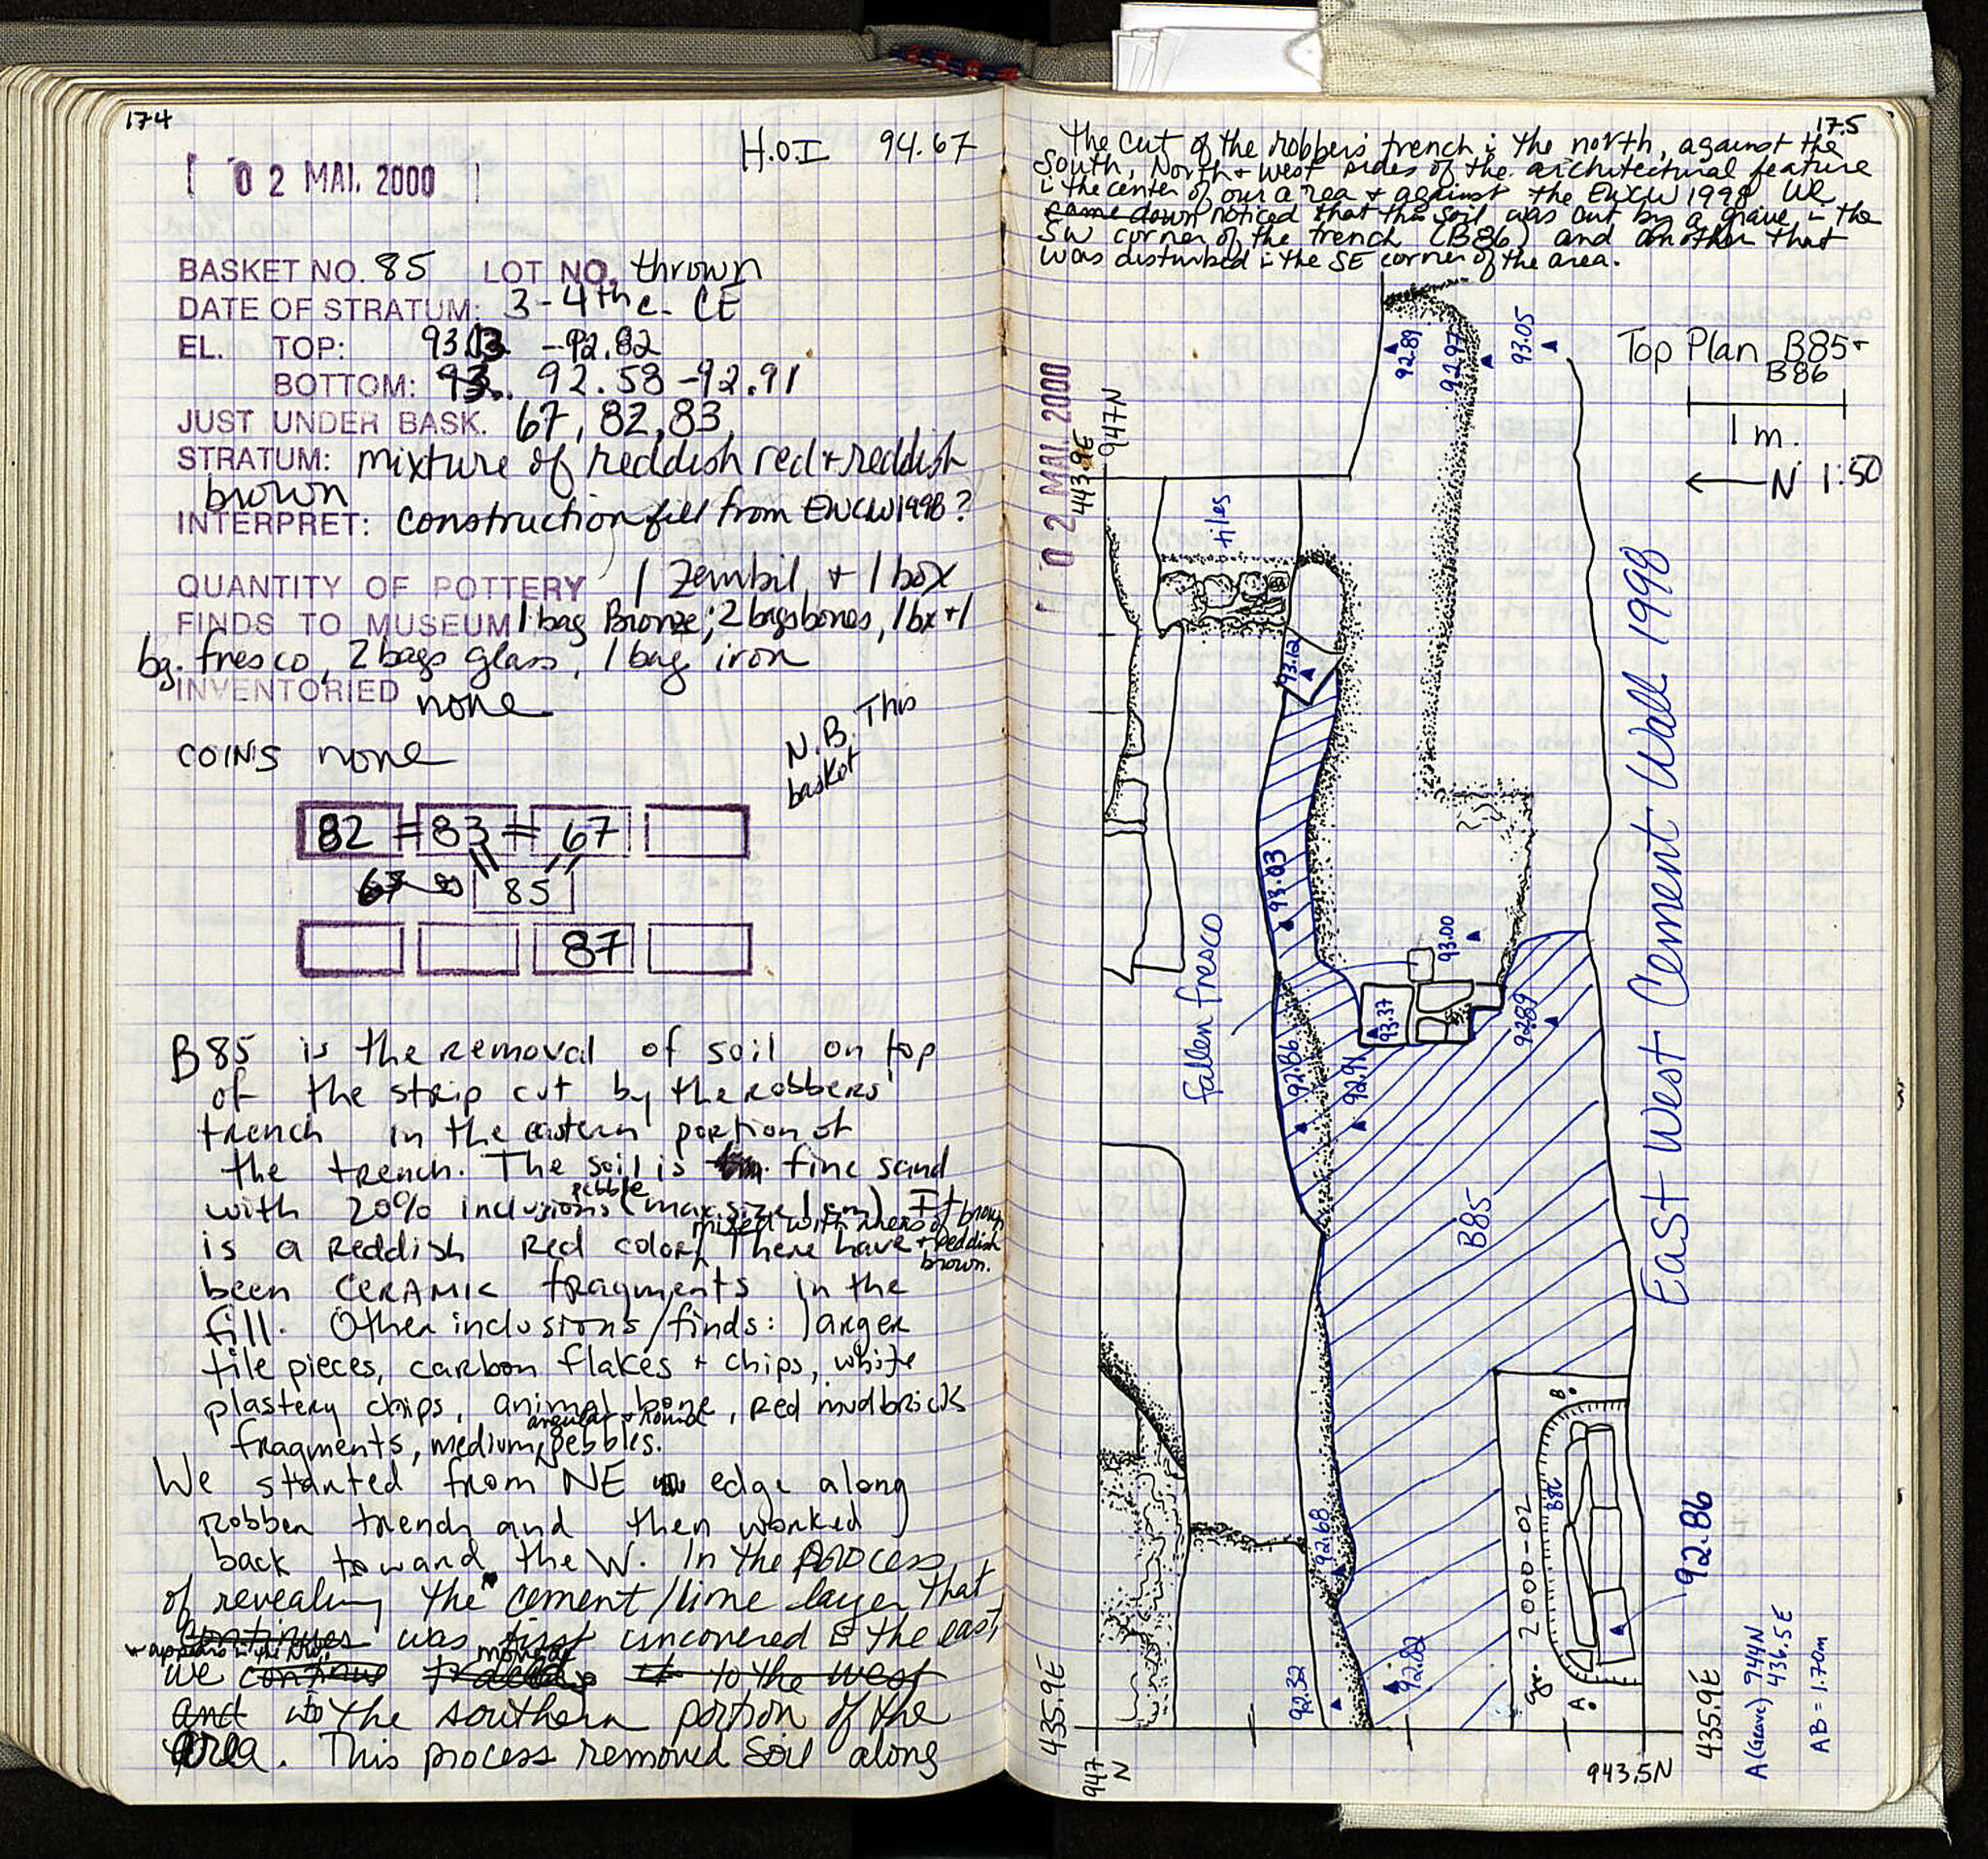 174
[ 0 2 MAI. 2000 ]
H.O.I 94.67
BASKET NO. 85 LOT NO. thrown
DATE OF STRATUM: 3-4th c. CE
EL. TOP: 93.13 - 92.82
BOTTOM: 92.58 - 92.91
JUST UNDER BASK. 67, 82, 83
STRATUM: mixture of reddish red + reddish
brown
INTERPRET: construction fill from EWCW1998?
QUANTITY OF POTTERY 1 Zembil + 1 box
FINDS TO MUSEUM 1 bag Bronze; 2 bags bones, 1 bx + 1
bg. fresco, 2 bags glass, 1 bag iron
INVENTORIED none
COINS none
N.B. This
basket
82 = 83 = 67
85
87
B85 is the removal of soil on top
of the strip cut by the robbers'
trench in the eastern portion of
the trench. The soil is fine sand
with 20% inclusions pebble (max. size 1 cm) It
is a reddish red color, mixed with areas of brown + reddish brown. There have
been ceramic fragments in the
fill. Other inclusions/finds: larger
tile pieces, carbon flakes + chips, white
plastery chips, animal bone, red mudbricks
fragments, medium, angular + round pebbles.
We started from NE edge along
robber trench and then worked
back toward the W. In the process
of revealing the cement/lime layer that
continues was first uncovered in the east,
+ appears in the NW.
we continue moved to the west
and into the southern portion of the
area. This process removed soil along
175
the cut of the robber's trench in the north, against the
South, North + west sides of the architectural feature
in the center of our area + against the EWCW 1998 We
came down noticed that this soil was cut by a grave in the
SW corner of the trench (B86) and another that
was disturbed in the SE corner of the area.
0 2 MAI. 2000
Top Plan B85 +
B86
1 m.
← N 1:50
443.9E
947N
92.89
92.97
93.05
tiles
93.12
93.03
fallen fresco
93.00
93.37
92.89
92.86
92.91
East West Cement Wall 1998
B85
92.68
92.32
92.82
gr. 2000-02
B86
B.
A.
92.86
435.9E
947
N
943.5N
435.9E
A (Grave) 944N
436.5E
AB = 1.70m